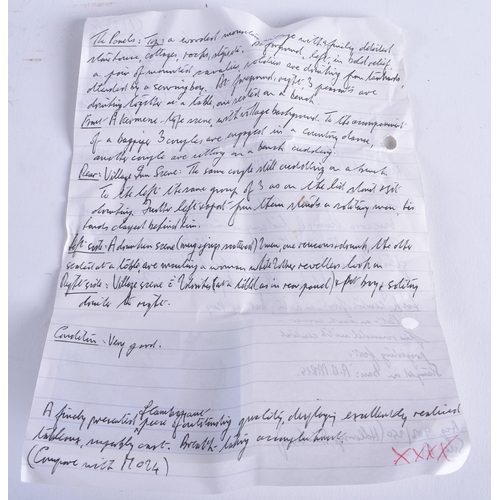 The Panels: Top: a wooded mountain with finely detailed
manor house, cottages, rocks, steps. In foreground, left, in bold relief,
a pair of mounted cavalry soldiers are drinking from tankards,
attended by a serving boy. At foreground, right 3 peasants are
drinking together at a table, one seated on a bench.
Front: A Kermesse-like scene with village background. To the accompaniment
of a bagpiper 3 couples are engaged in a country dance,
another couple are sitting on a bench cuddling
Rear: Village Inn Scene: The same couple still cuddling on a bench
To the left the same group of 3 as on the lid stand
drinking. Further left & apart from them stands a solitary man, his
hands clasped behind him.
Left side: A drunken scene (many jugs scattered) 2 men, one raucous drunk, the other
seated at a table, are a woman while other revellers look on
Right side: Village scene = (at a table as in rear panel) + boy & solitary
to right.
Condition: Very good.
flamboyant
A finely presented piece of outstanding quality, displaying excellently realised
tableaux, superbly cast. Breath-taking accomplishment
(Compare with M024)
XXXX